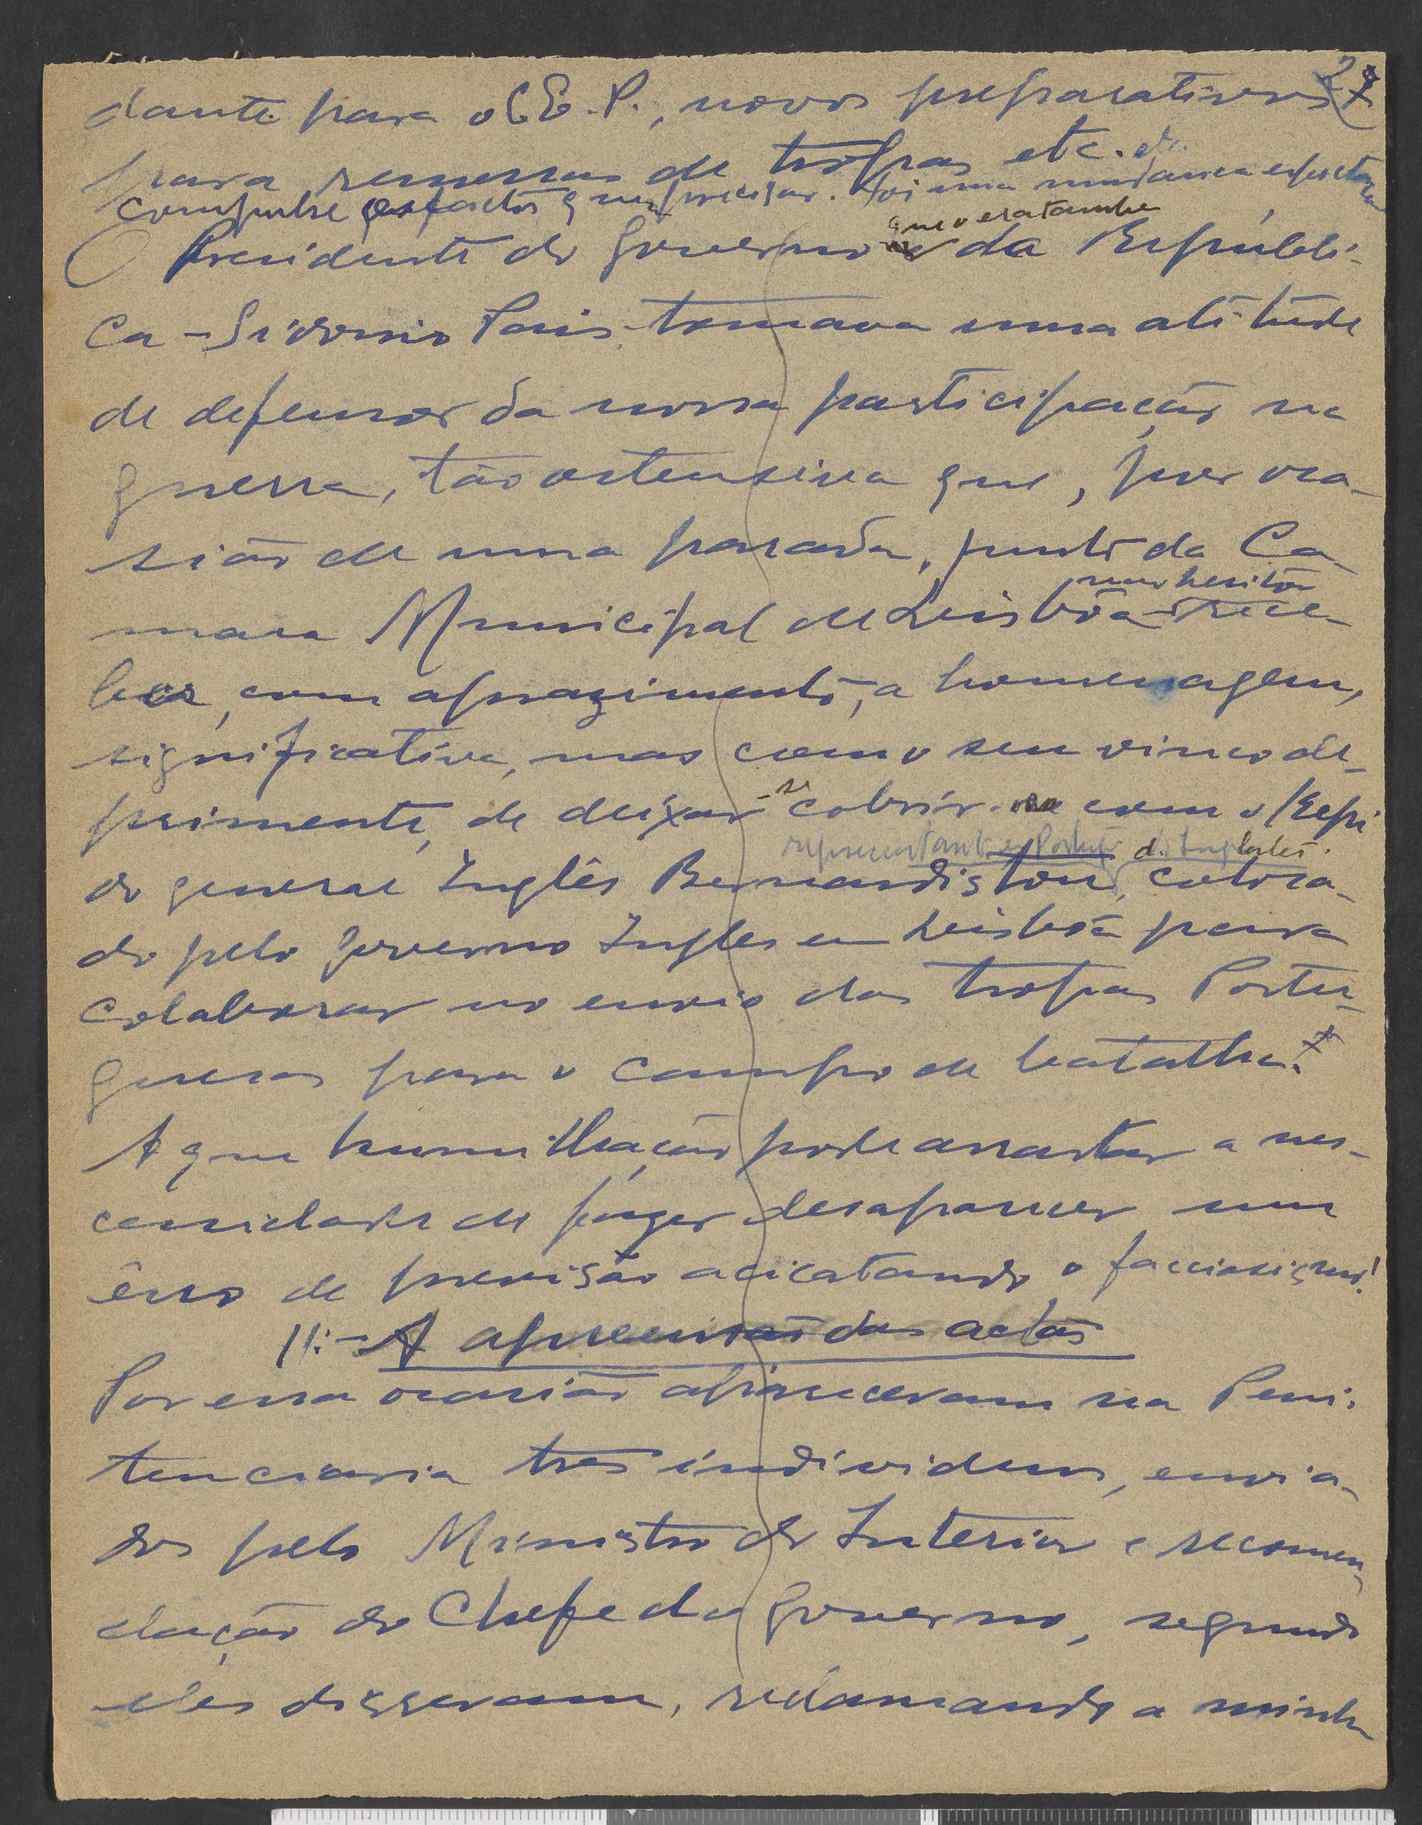 27
dante para o C.E.P., novos preparativos
para remessas de tropas etc. etc.
Foi uma mudança
O Presidente do Governo que o era tambem da Républi-
ca - Sidonio Pais - tomava uma atitude
de defensor da nossa participação na
guerra, tão ostensiva que, por oca-
sião de uma parada, junto da Ca-
mara Municipal de Lisbôa - não hesitou rece-
ber, com aprazimento, a homenagem,
significativa, mas com o seu vinco de-
primente, de deixar-se cobrir com o Kepi
representante em Portugal da Inglaterra
do general Inglês Bernardiston, coloca-
do pelo governo Ingles em Lisbôa para
colaborar no envio das tropas Portu-
guesas para o campo de batalha.
A que humilhação pode arrastar a nes-
cessidade de fingir desaparecer um
êrro de previsão acicatando o facciosismo!
11:- A apreensão das actas
Por essa ocasião apareceram na Peni-
tenciaria tres individuos, envia-
dos pelo Ministro do Interior e recomen-
dação do Chefe do Governo, segundo
eles disseram, reclamando a minha